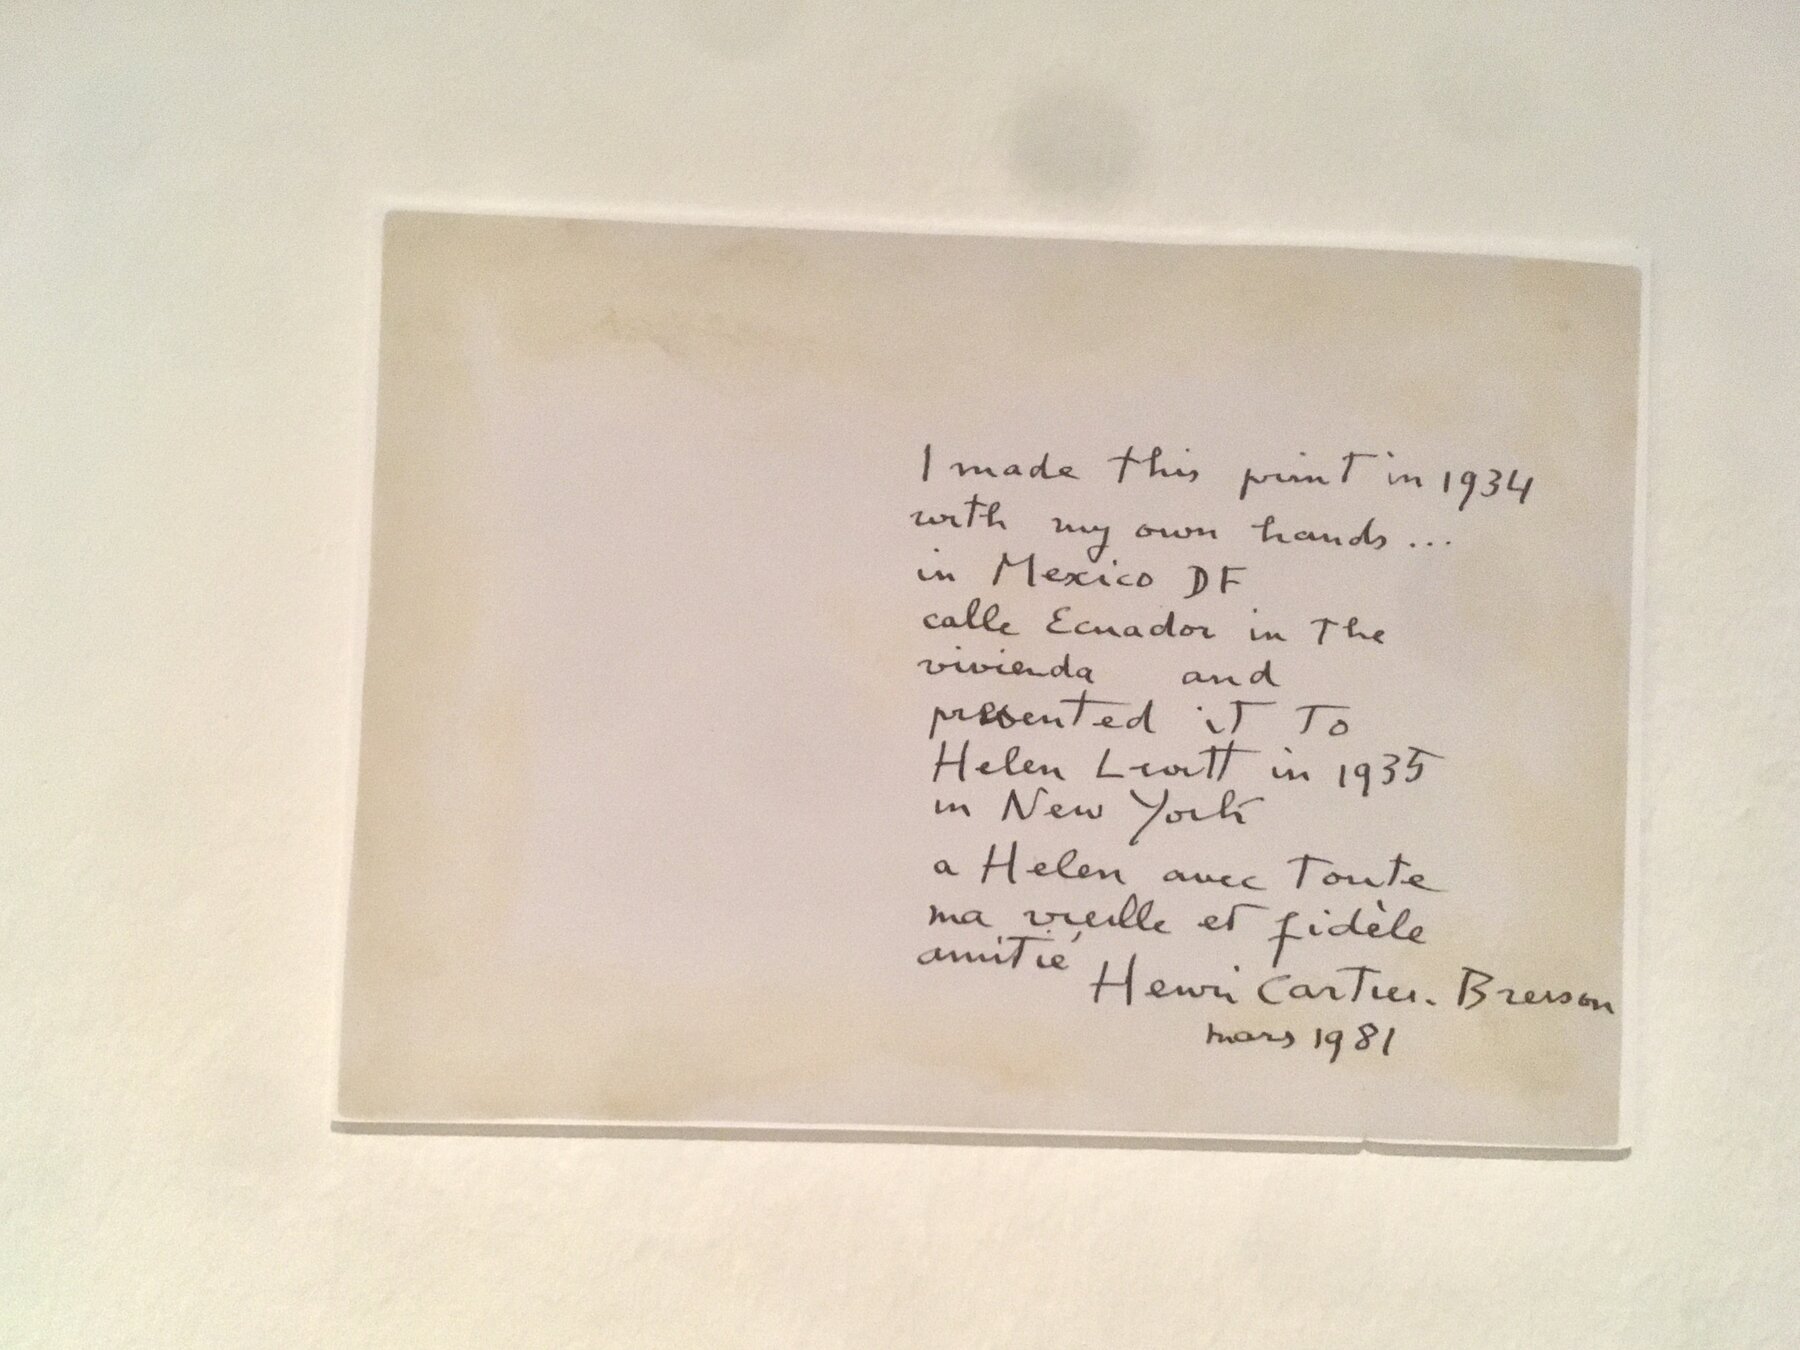 I made this print in 1934
with my own hands...
in Mexico DF
calle Ecuador in the
vivienda and
presented it to
Helen Levitt in 1935
in New York
a Helen avec toute
ma vieille et fidèle
amitié
Henri Cartier-Bresson
mars 1981